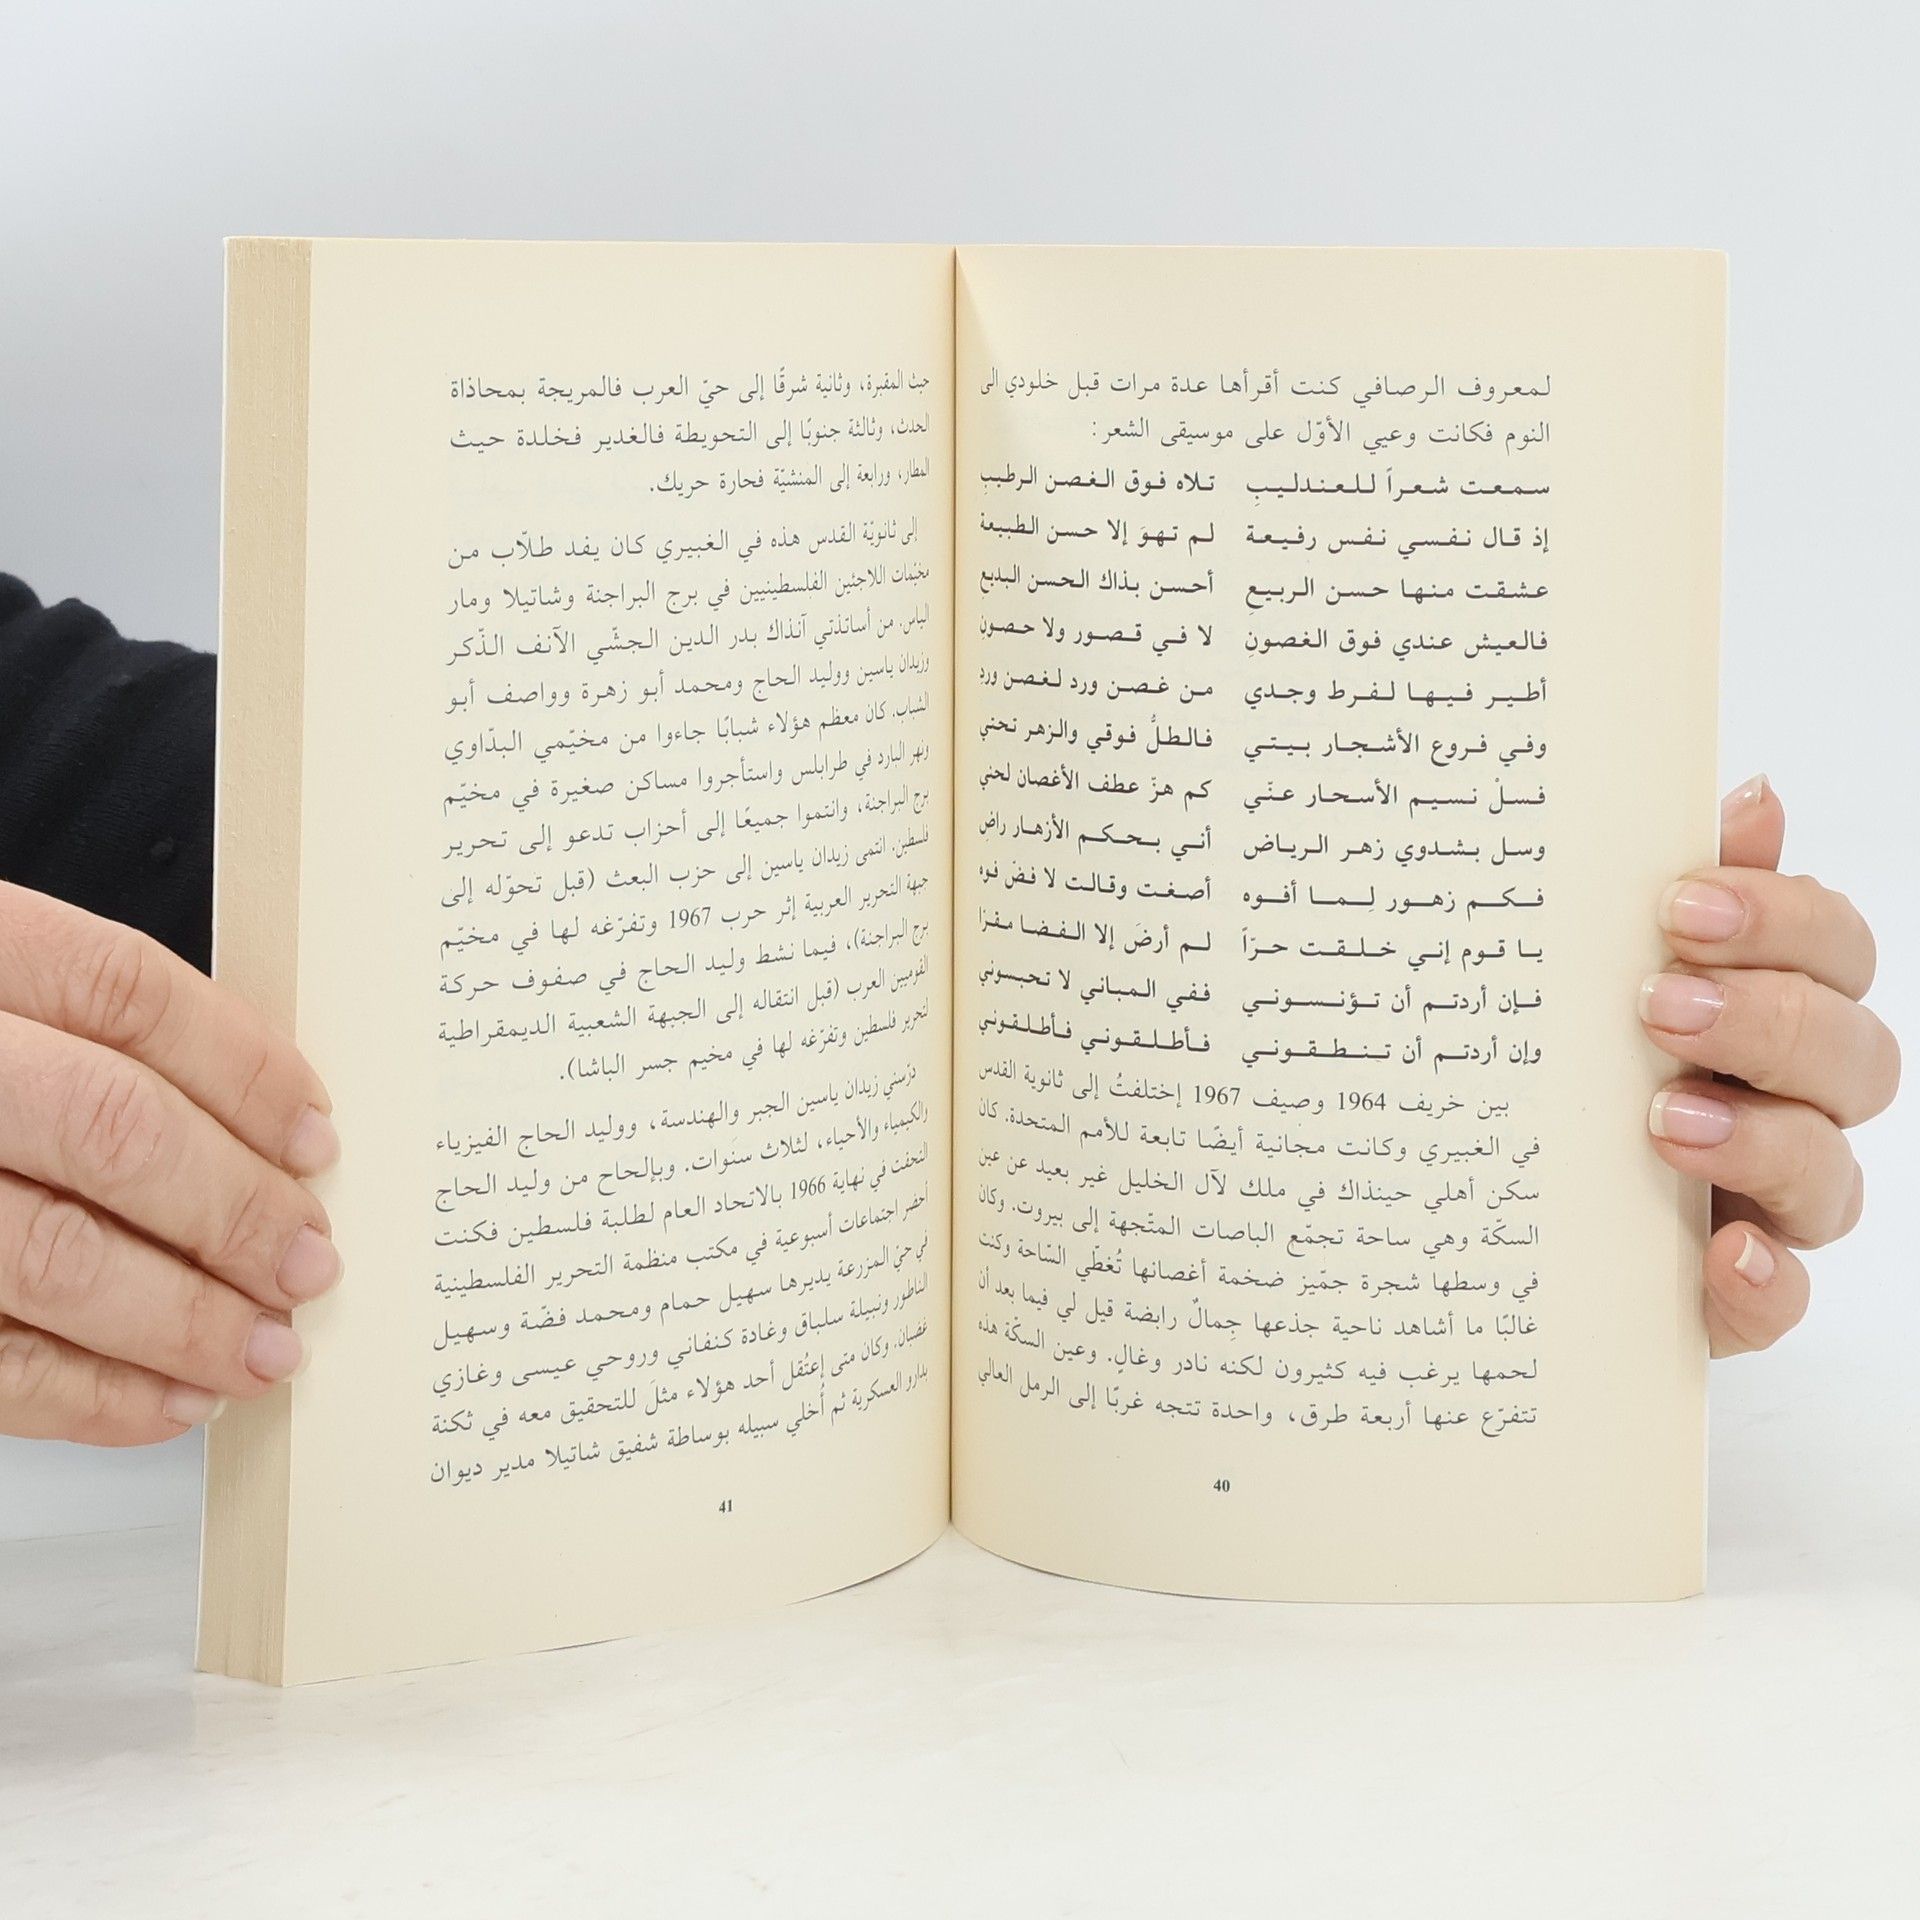 لمعروف الرصافي كنت أقرأها عدة مرات قبل خلودي الى
النوم فكانت وعيي الأوّل على موسيقى الشعر:
سمعت شعراً للعندليبِ تلاه فوق الغصن الرطيبِ
إذ قال نفسي نفس رفيعة لم تهوَ إلا حسن الطبيعة
عشقت منها حسن الربيعِ أحسن بذاك الحسن البديع
فالعيش عندي فوق الغصونِ لا في قصور ولا حصونِ
أطير فيها لفرط وجدي من غصن ورد لغصن وردِ
وفي فروع الأشجار بيتي فالطلُّ فوقي والزهر تحني
فسلْ نسيم الأسحار عنّي كم هزّ عطف الأغصان لحني
وسل بشدوي زهر الرياض أني بحكم الأزهار راضِ
فكم زهور لِما أفوه أصغت وقالت لا فضّ فوه
يا قوم إني خلقت حرّاً لم أرضَ إلا الفضا مقرّا
فإن أردتم أن تؤنسوني ففي المباني لا تحبسوني
وإن أردتم أن تنطقوني فأطلقوني فأطلقوني
بين خريف 1964 وصيف 1967 إختلفتُ إلى ثانوية القدس
في الغبيري وكانت مجانية أيضًا تابعة للأمم المتحدة. كان
سكن أهلي حينذاك في ملك لآل الخليل غير بعيد عن عين
السكّة وهي ساحة تجمّع الباصات المتّجهة إلى بيروت. وكان
في وسطها شجرة جمّيز ضخمة أغصانها تُغطّي السّاحة وكنت
غالبًا ما أشاهد ناحية جذعها جِمالٌ رابضة قيل لي فيما بعد أن
لحمها يرغب فيه كثيرون لكنه نادر وغالٍ. وعين السكّة هذه
تتفرّع عنها أربعة طرق، واحدة تتجه غربًا إلى الرمل العالي
40
حيث المقبرة، وثانية شرقًا إلى حيّ العرب فالمريجة بمحاذاة
الحدث، وثالثة جنوبًا إلى التحويطة فالغدير فخلدة حيث
المطار، ورابعة إلى المنشيّة فحارة حريك.
إلى ثانويّة القدس هذه في الغبيري كان يفد طلّاب من
مخيّمات اللاجئين الفلسطينيين في برج البراجنة وشاتيلا ومار
الياس. من أساتذتي آنذاك بدر الدين الجشّي الآنف الذّكر
وزيدان ياسين ووليد الحاج ومحمد أبو زهرة وواصف أبو
الشباب. كان معظم هؤلاء شبابًا جاءوا من مخيّمي البدّاوي
ونهر البارد في طرابلس واستأجروا مساكن صغيرة في مخيّم
برج البراجنة، وانتموا جميعًا إلى أحزاب تدعو إلى تحرير
فلسطين. انتمى زيدان ياسين إلى حزب البعث (قبل تحوّله إلى
جبهة التحرير العربية إثر حرب 1967 وتفرّغه لها في مخيّم
برج البراجنة)، فيما نشط وليد الحاج في صفوف حركة
القوميين العرب (قبل انتقاله إلى الجبهة الشعبية الديمقراطية
لتحرير فلسطين وتفرّغه لها في مخيم جسر الباشا).
درّسني زيدان ياسين الجبر والهندسة، ووليد الحاج الفيزياء
والكيمياء والأحياء، لثلاث سنَوات. وبإلحاح من وليد الحاج
التحقت في نهاية 1966 بالاتحاد العام لطلبة فلسطين فكنت
أحضر اجتماعات أسبوعية في مكتب منظمة التحرير الفلسطينية
في حيّ المزرعة يديرها سهيل حمام ومحمد فضّة وسهيل
الناطور ونبيلة سلباق وغادة كنفاني وروحي عيسى وغازي
غضبان. وكان متى إعتُقل أحد هؤلاء مثلَ للتحقيق معه في ثكنة
بدارو العسكرية ثم أُخلي سبيله بوساطة شفيق شاتيلا مدير ديوان
41